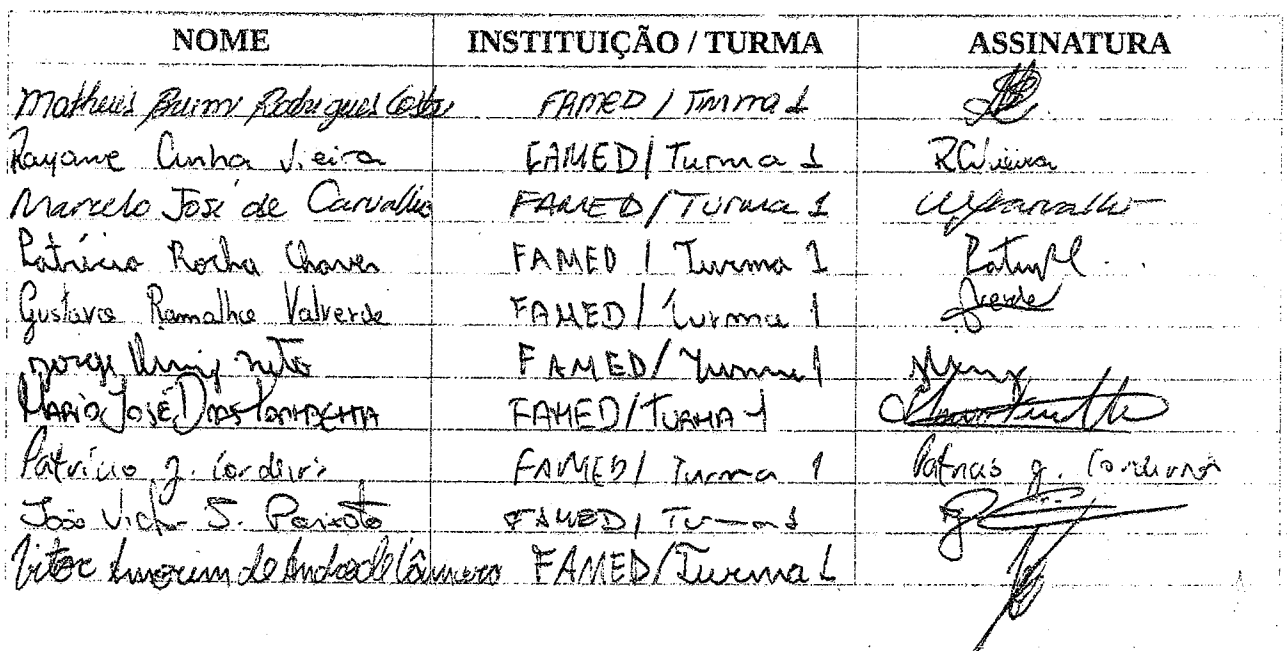 NOME INSTITUIÇÃO / TURMA ASSINATURA
Matheus Rodrigues Costa FAMED / Turma 1
Rayane Cunha Vieira FAMED / Turma 1 RCVieira
Marcelo José de Carvalho FAMED / Turma 1
Patrícia Rocha Chaves FAMED / Turma 1
Gustavo Ramalho Valverde FAMED / Turma 1
Neto FAMED / Turma 1
MARIO JOSÉ DIAS FAMED / TURMA 1
Patrício J. Cordeiro FAMED / Turma 1 Patrício J. Cordeiro
João Victor S. Peixoto FAMED / Turma 1
Vitor Amorim de Andrade Câmara FAMED / Turma 1